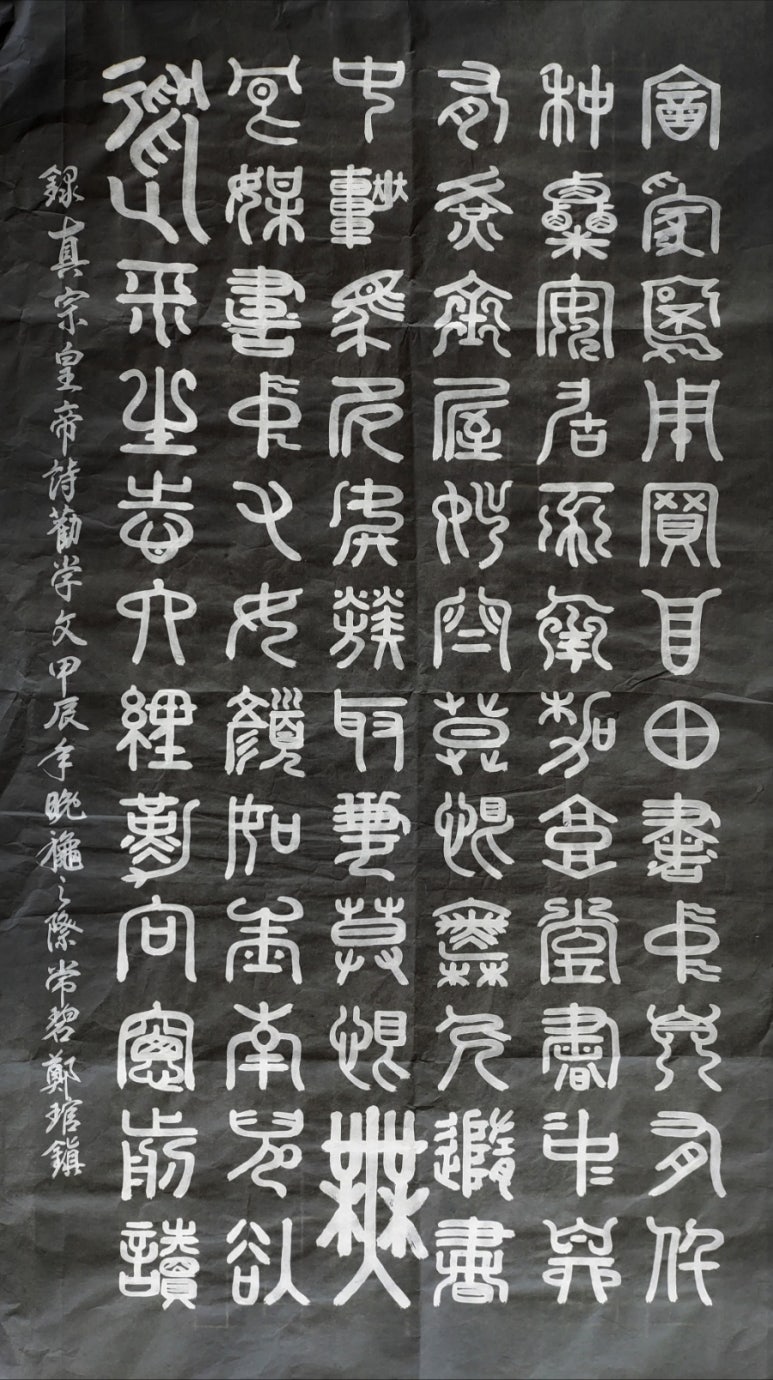 富家不用買良田書中自有千
种粟安居不用架高堂書中自
有黃金屋出門莫恨無人隨書
中車馬多如簇取妻莫恨無
良媒書中有女顏如玉男兒欲
遂平生志六經勤向窗前讀
錄真宗皇帝詩勸学文甲辰年晚龝之際常碧鄭琯鎮